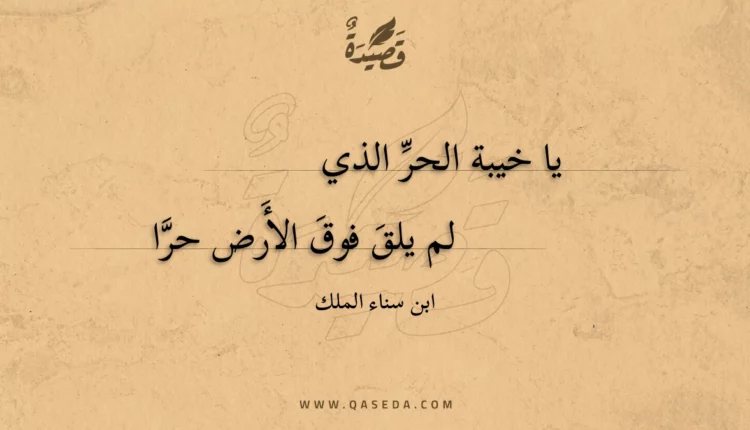 قَصِيدَةٌ
يا خيبة الحرِّ الذي
لم يلقَ فوقَ الأَرض حرَّا
ابن سناء الملك
WWW.QASEDA.COM